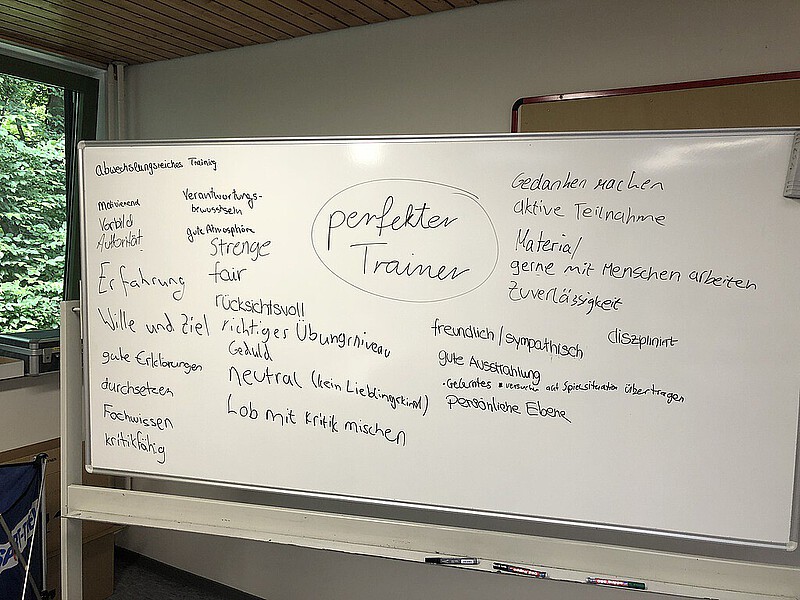 Abwechslungsreiches Training
motivierend
Vorbild
Autorität
Erfahrung
Wille und Ziel
gute Erklärungen
durchsetzen
Fachwissen
kritikfähig
Verantwortungs-
bewusstsein
gute Atmosphäre
Strenge
fair
rücksichtsvoll
richtiges Übungsniveau
Geduld
neutral (kein Lieblingskind)
Lob mit Kritik mischen
perfekter
Trainer
Gedanken machen
aktive Teilnahme
Material
gerne mit Menschen arbeiten
Zuverlässigkeit
freundlich/sympathisch
diszipliniert
gute Ausstrahlung
auf Spielsituation übertragen
persönliche Ebene